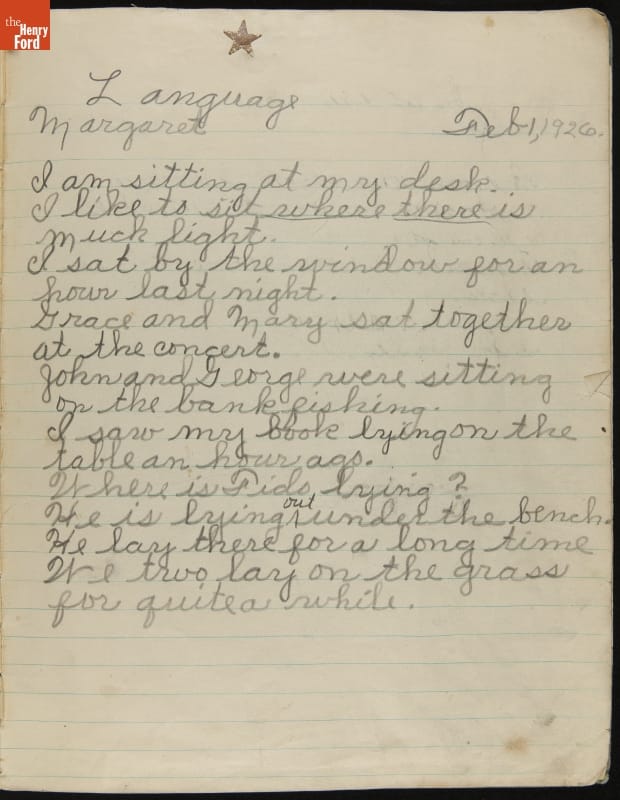 the
Henry
Ford
Language
Margaret Feb 1, 1926.
I am sitting at my desk.
I like to sit where there is
much light.
I sat by the window for an
hour last night.
Grace and Mary sat together
at the concert.
John and George were sitting
on the bank fishing.
I saw my book lying on the
table an hour ago.
Where is Fido lying?
out
He is lying under the bench.
He lay there for a long time
We two lay on the grass
for quite a while.